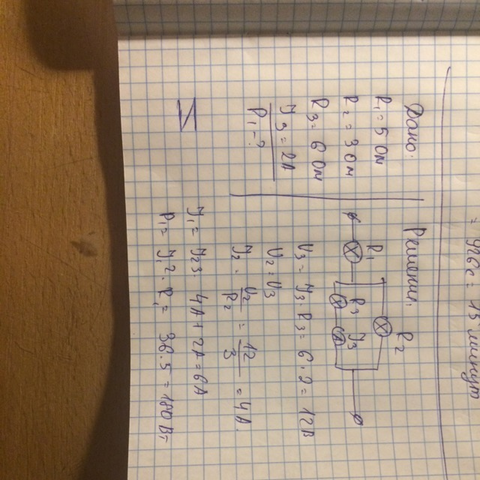 = 926с = 15 минут
Дано:
R₁ = 5 Ом
R₂ = 3 Ом
R₃ = 6 Ом
J₃ = 2А
P₁ - ?
Решение.
R₁
R₂
R₃
J₃
U₃ = J₃ · R₃ = 6 · 2 = 12В
U₂ = U₃
J₂ = U₂/R₂ = 12/3 = 4А.
J₁ = J₂₃ 4А + 2А = 6А
P₁ = J₁² · R₁ = 36 · 5 = 180 Вт